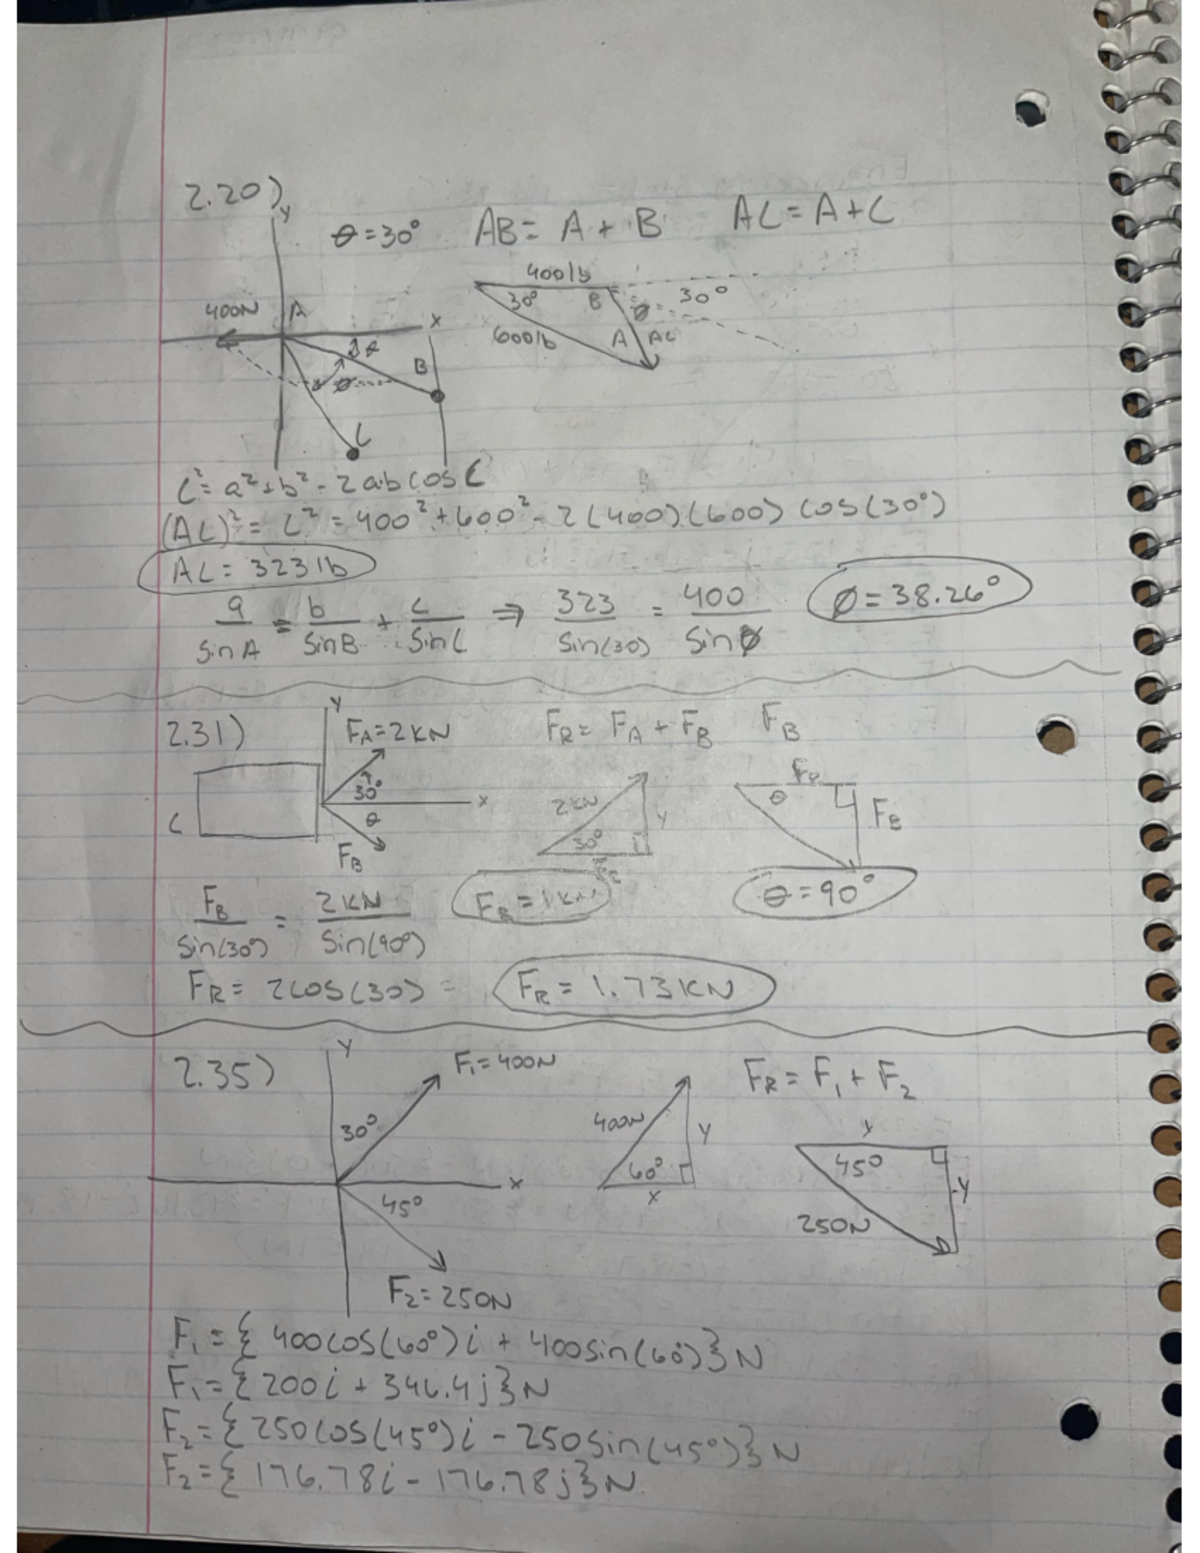 2.20)
y
θ = 30° AB = A + B AC = A + C
400lb
30° B ø 30°
400N A
x
600lb A AC
θ
B
ø
C
C² = a² + b² - 2ab cos C
(AC)² = C² = 400² + 600² - 2(400)(600) cos(30°)
AC = 323 lb
a/sin A = b/sin B + c/sin C ⇒ 323/sin(30) = 400/sin ø ø = 38.26°
2.31)
y
F_A = 2KN F_R = F_A + F_B F_B
30° x
2KN y
30°
θ F_B
C
θ
F_B
F_B/sin(30°) = 2KN/sin(90°) F_B = 1KN θ = 90°
F_R = 2cos(30) = F_R = 1.73KN
2.35)
y
F₁ = 400N F_R = F₁ + F₂
30°
400N y
60°
x
x
45° -y
250N
x
45°
F₂ = 250N
F₁ = { 400cos(60°)i + 400sin(60)}N
F₁ = {200i + 346.4j}N
F₂ = {250cos(45°)i - 250sin(45°)}N
F₂ = {176.78i - 176.78j}N